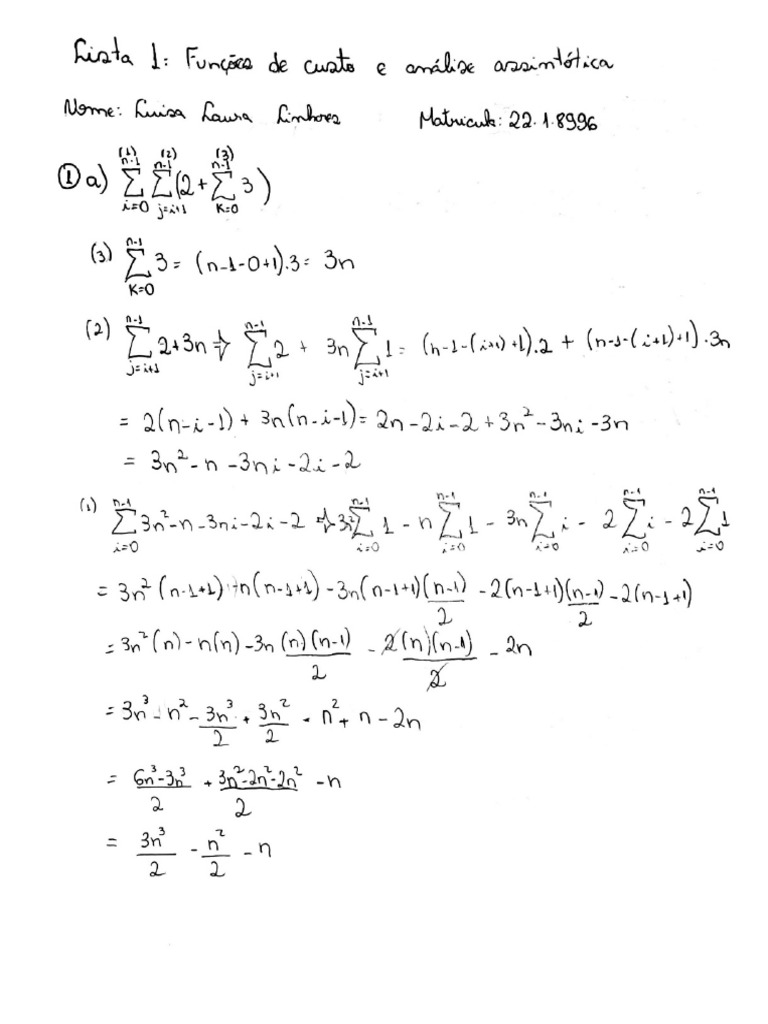 Lista 1: Funções de custo e análise assintótica
Nome: Luisa Laura Linhores Matricula: 22.1.8996
① a) ∑_{i=0}^{n-1 (1)} ∑_{j=i+1}^{n-1 (2)} (2 + ∑_{K=0}^{n-1 (3)} 3)
(3) ∑_{K=0}^{n-1} 3 = (n-1-0+1).3 = 3n
(2) ∑_{j=i+1}^{n-1} 2+3n ⇒ ∑_{j=i+1}^{n-1} 2 + 3n ∑_{j=i+1}^{n-1} 1 = (n-1-(i+1)+1).2 + (n-1-(i+1)+1).3n
= 2(n-i-1) + 3n(n-i-1) = 2n - 2i - 2 + 3n² - 3ni - 3n
= 3n² - n - 3ni - 2i - 2
(1) ∑_{i=0}^{n-1} 3n²-n-3ni-2i-2 ⇒ 3n² ∑_{i=0}^{n-1} 1 - n ∑_{i=0}^{n-1} 1 - 3n ∑_{i=0}^{n-1} i - 2 ∑_{i=0}^{n-1} i - 2 ∑_{i=0}^{n-1} 1
= 3n²(n-1+1) - n(n-1+1) - 3n(n-1+1)(n-1)/2 - 2(n-1+1)(n-1)/2 - 2(n-1+1)
= 3n²(n) - n(n) - 3n(n)(n-1)/2 - 2(n)(n-1)/2 - 2n
= 3n³ - n² - 3n³/2 + 3n²/2 - n² + n - 2n
= 6n³-3n³/2 + 3n²-2n²-2n²/2 - n
= 3n³/2 - n²/2 - n